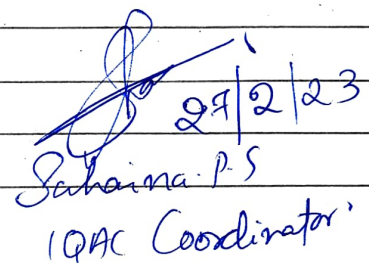 27/2/23
Sahaina. P.S
IQAC Coordinator